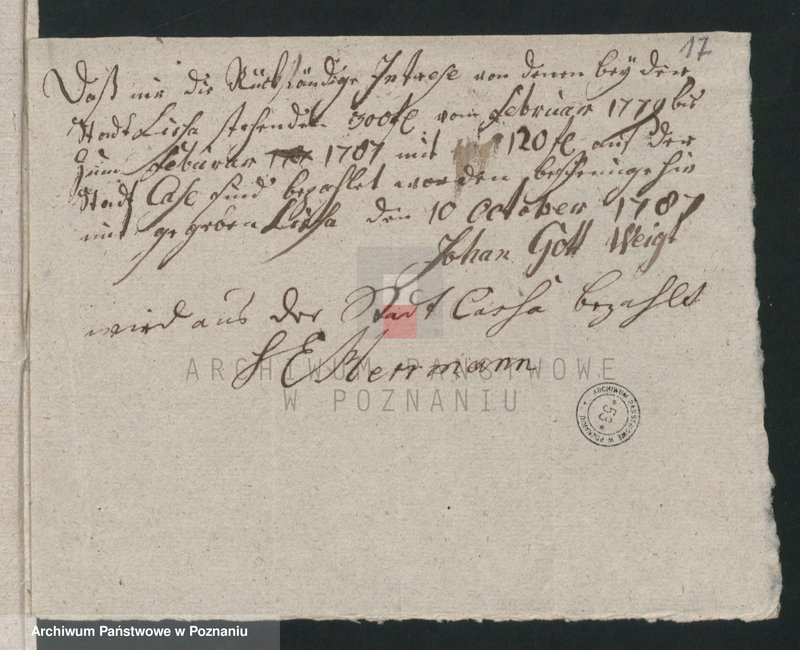 17
Daß mir die Rückständige Intrese von denen bey der
Stadt Lissa stehenden 300 fl vom Februar 1779 bis
Zum Februar 1787 mit 120 fl aus der
Stadt Case sind bezahlet worden bescheinige hier
mit gegeben Lissa den 10 October 1787
Johan Gott Weigt
wird aus der Stadt Cassa bezahlt
S E Herrmann
ARCHIWUM PAŃSTWOWE
W POZNANIU
ARCHIWUM PAŃSTWOWE W POZNANIU
* 53 *
Archiwum Państwowe w Poznaniu